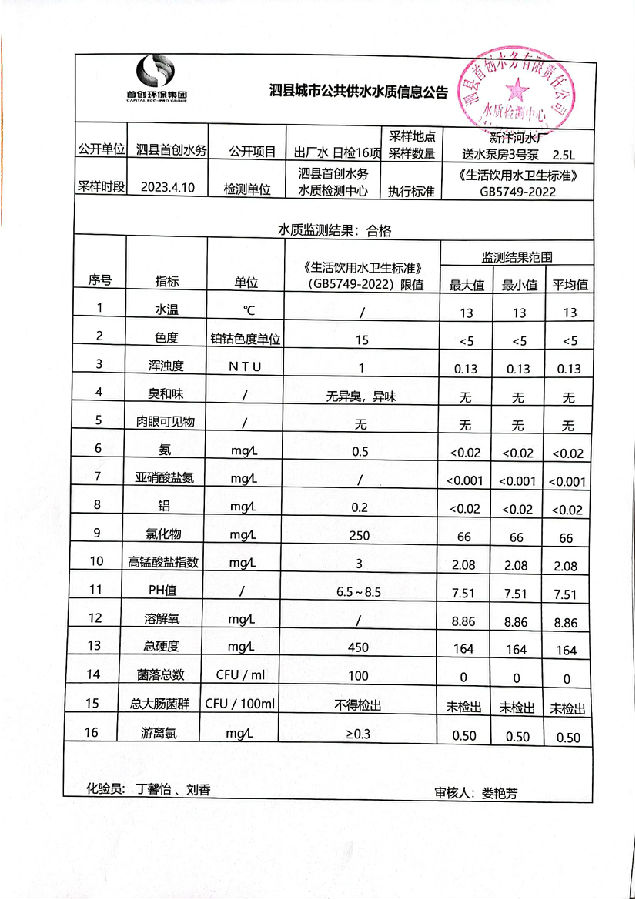 首创环保集团
CAPITAL ECO-PRO GROUP
泗县城市公共供水水质信息公告
泗县首创水务有限责任公司
水质检测中心
公开单位 泗县首创水务 公开项目 出厂水 日检16项 采样地点 采样数量 新汴河水厂 送水泵房3号泵 2.5L
采样时段 2023.4.10 检测单位 泗县首创水务 水质检测中心 执行标准 《生活饮用水卫生标准》 GB5749-2022
水质监测结果：合格
序号 指标 单位 《生活饮用水卫生标准》 （GB5749-2022）限值 监测结果范围
最大值 最小值 平均值
1 水温 ℃ / 13 13 13
2 色度 铂钴色度单位 15 <5 <5 <5
3 浑浊度 NTU 1 0.13 0.13 0.13
4 臭和味 / 无异臭，异味 无 无 无
5 肉眼可见物 / 无 无 无 无
6 氨 mg/L 0.5 <0.02 <0.02 <0.02
7 亚硝酸盐氮 mg/L / <0.001 <0.001 <0.001
8 铝 mg/L 0.2 <0.02 <0.02 <0.02
9 氯化物 mg/L 250 66 66 66
10 高锰酸盐指数 mg/L 3 2.08 2.08 2.08
11 PH值 / 6.5~8.5 7.51 7.51 7.51
12 溶解氧 mg/L / 8.86 8.86 8.86
13 总硬度 mg/L 450 164 164 164
14 菌落总数 CFU / ml 100 0 0 0
15 总大肠菌群 CFU / 100ml 不得检出 未检出 未检出 未检出
16 游离氯 mg/L ≥0.3 0.50 0.50 0.50
化验员：丁馨怡、刘香 审核人：娄艳芳